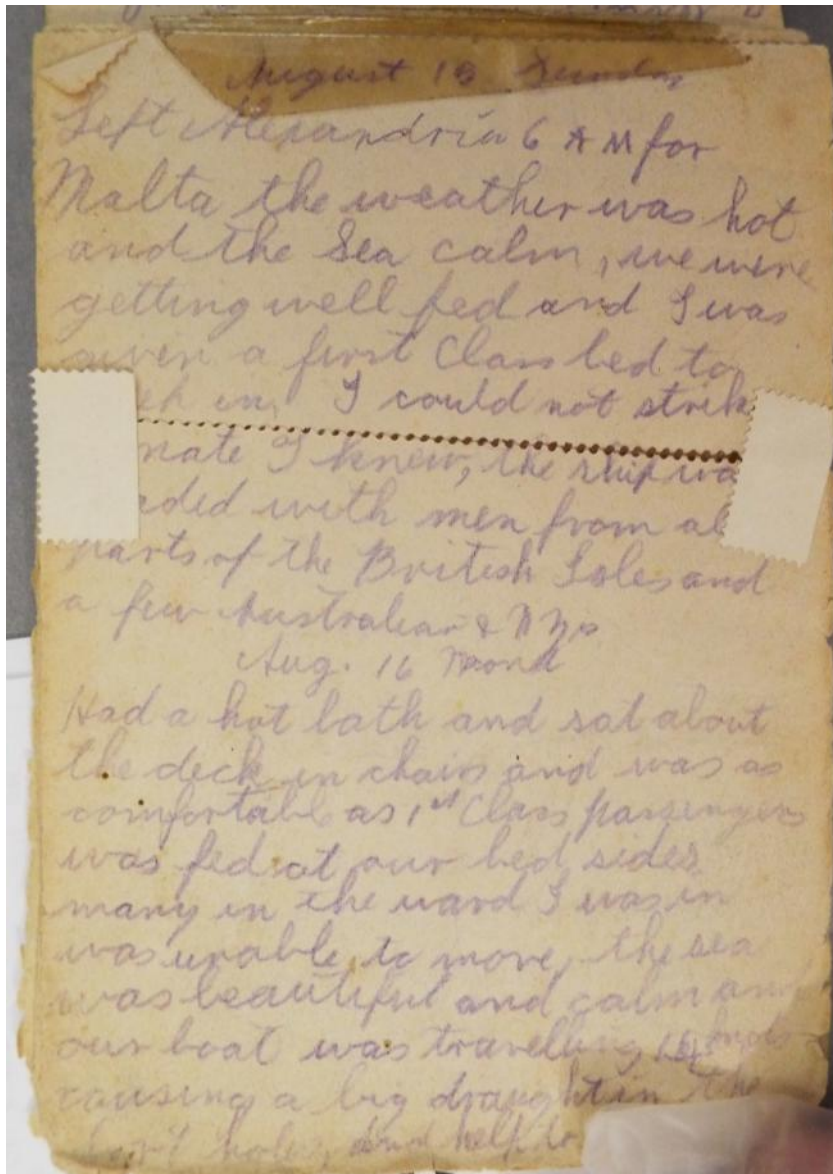 August 15 Sunday
Left Alexandria 6 AM for
Malta the weather was hot
and the Sea calm, we were
getting well fed and I was
given a first Class bed to
in, I could not strike
mate I knew, the ship wa
aded with men from al
parts of the British Isles and
a few Australian & N Zs
Aug. 16 Mond
Had a hot bath and sat about
the deck in chairs and was as
comfortable as 1st Class passengers
was fed at our bed sides
many in the ward I was in
was unable to move, the sea
was beautiful and calm and
our boat was travelling knots
causing a big draught in the
port holes, and help to